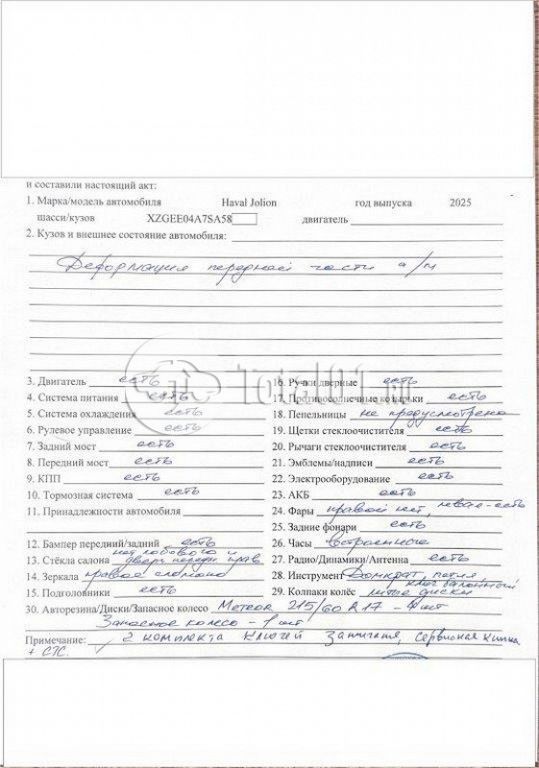 и составили настоящий акт:
1. Марка/модель автомобиля Haval Jolion год выпуска 2025
шасси/кузов XZGEE04A7SA58 двигатель
2. Кузов и внешнее состояние автомобиля:
Деформация передней части а/м
Total01.ru
3. Двигатель есть 16. Ручки дверные есть
4. Система питания есть 17. Противосолнечные козырьки есть
5. Система охлаждения есть 18. Пепельницы не предусмотрено
6. Рулевое управление есть 19. Щетки стеклоочистителя есть
7. Задний мост есть 20. Рычаги стеклоочистителя есть
8. Передний мост есть 21. Эмблемы/надписи есть
9. КПП есть 22. Электрооборудование есть
10. Тормозная система есть 23. АКБ есть
11. Принадлежности автомобиля 24. Фары правой нет, левая-есть
25. Задние фонари есть
12. Бампер передний/задний есть 26. Часы встроенные
13. Стёкла салона нет лобового и двери передн прав 27. Радио/Динамики/Антенна есть
14. Зеркала правое сломано 28. Инструмент Домкрат, петля ключ балонный
15. Подголовники есть 29. Колпаки колёс литые диски
30. Авторезина/Диски/Запасное колесо Meteor 215/60 R17 - 4 шт
Запасное колесо - 1 шт
Примечание: 2 комплекта ключей зажигания, сервисная книжка
+ СТС.